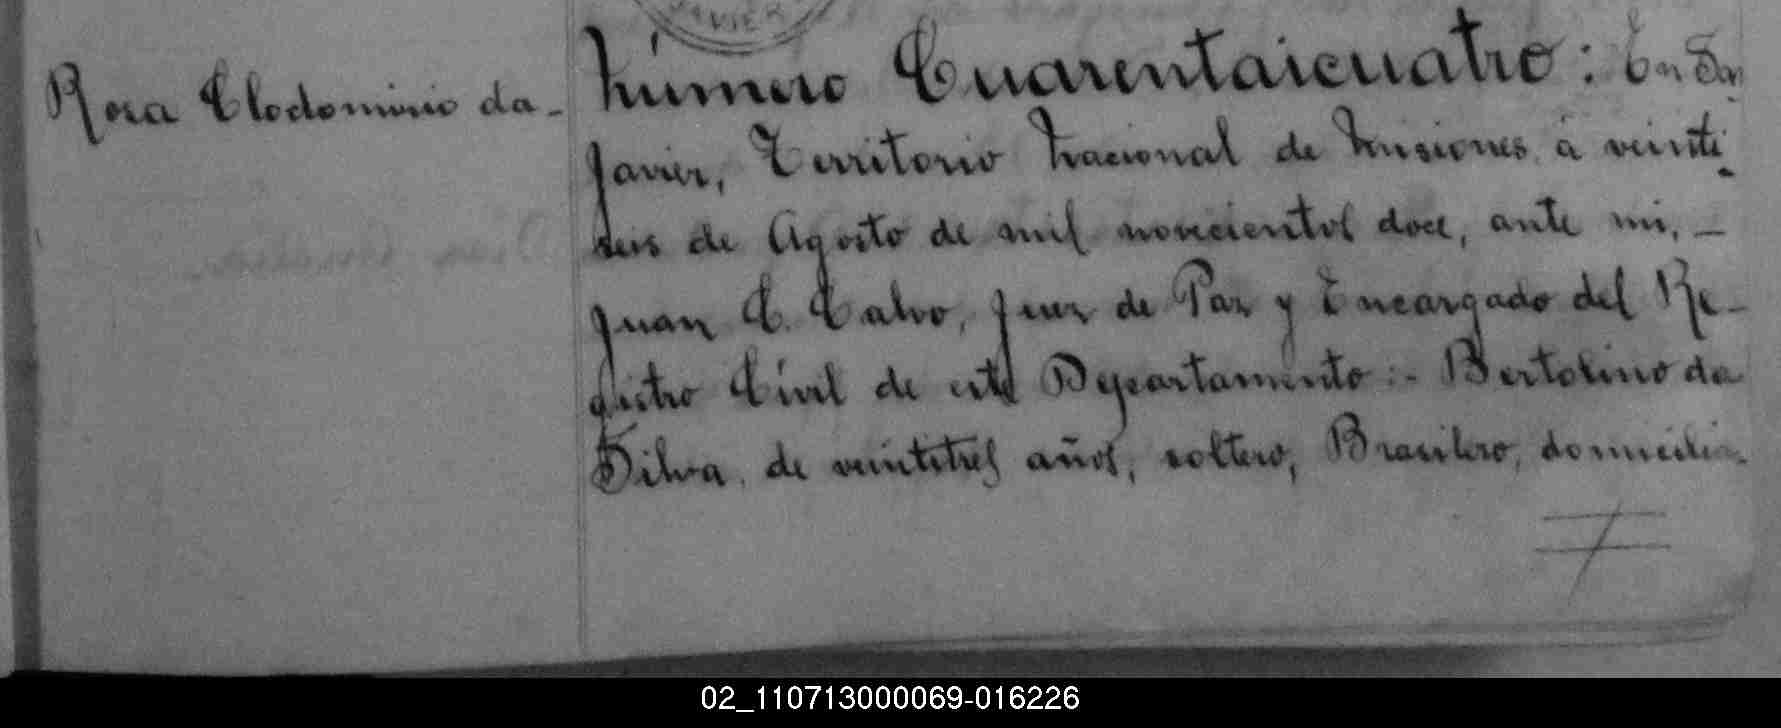 JAVIER
Rosa Clodomirio da-
Número Cuarentaicuatro: En San
Javier, Territorio Nacional de Misiones á veinti
seis de Agosto de mil novecientos doce, ante mi, -
Juan C. Calvo, Juez de Paz y Encargado del Re-
gistro Civil de este Departamento:- Bertolino da
Silva, de veintitres años, soltero, Brasilero, domicilia-
02_110713000069-016226